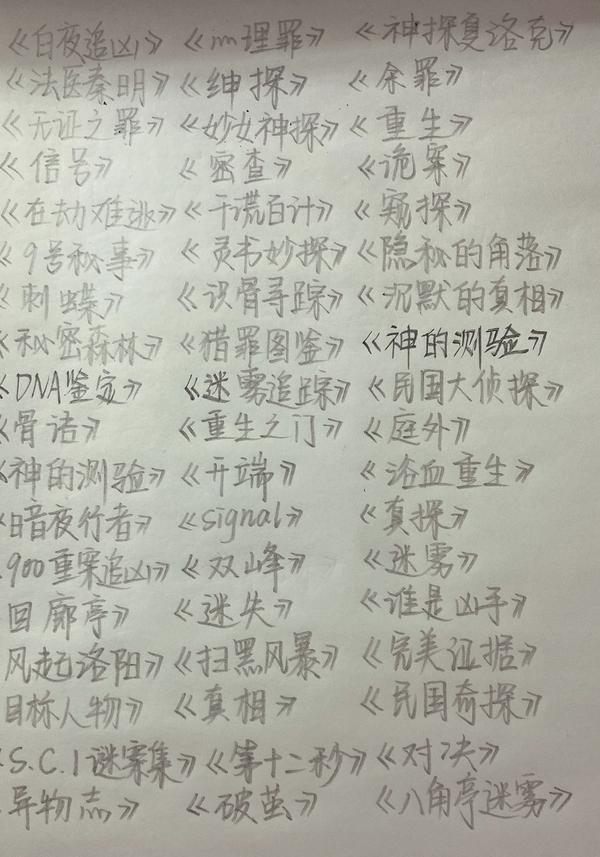 《白夜追凶》 《心理罪》 《神探夏洛克》
《法医秦明》 《绅探》 《余罪》
《无证之罪》 《妙女神探》 《重生》
《信号》 《密查》 《诡案》
《在劫难逃》 《千谎百计》 《窥探》
《9号秘事》 《灵书妙探》 《隐秘的角落》
《刺蝶》 《识骨寻踪》 《沉默的真相》
《秘密森林》 《猎罪图鉴》 《神的测验》
《DNA鉴定》 《迷雾追踪》 《民国大侦探》
《骨语》 《重生之门》 《庭外》
《神的测验》 《开端》 《浴血重生》
《暗夜行者》 《signal》 《真探》
900重案追凶》 《双峰》 《迷雾》
回廊亭》 《迷失》 《谁是凶手》
风起洛阳》 《扫黑风暴》 《完美证据》
目标人物》 《真相》 《民国奇探》
《S.C.I谜案集》 《第十二秒》 《对决》
异物志》 《破茧》 《八角亭迷雾》